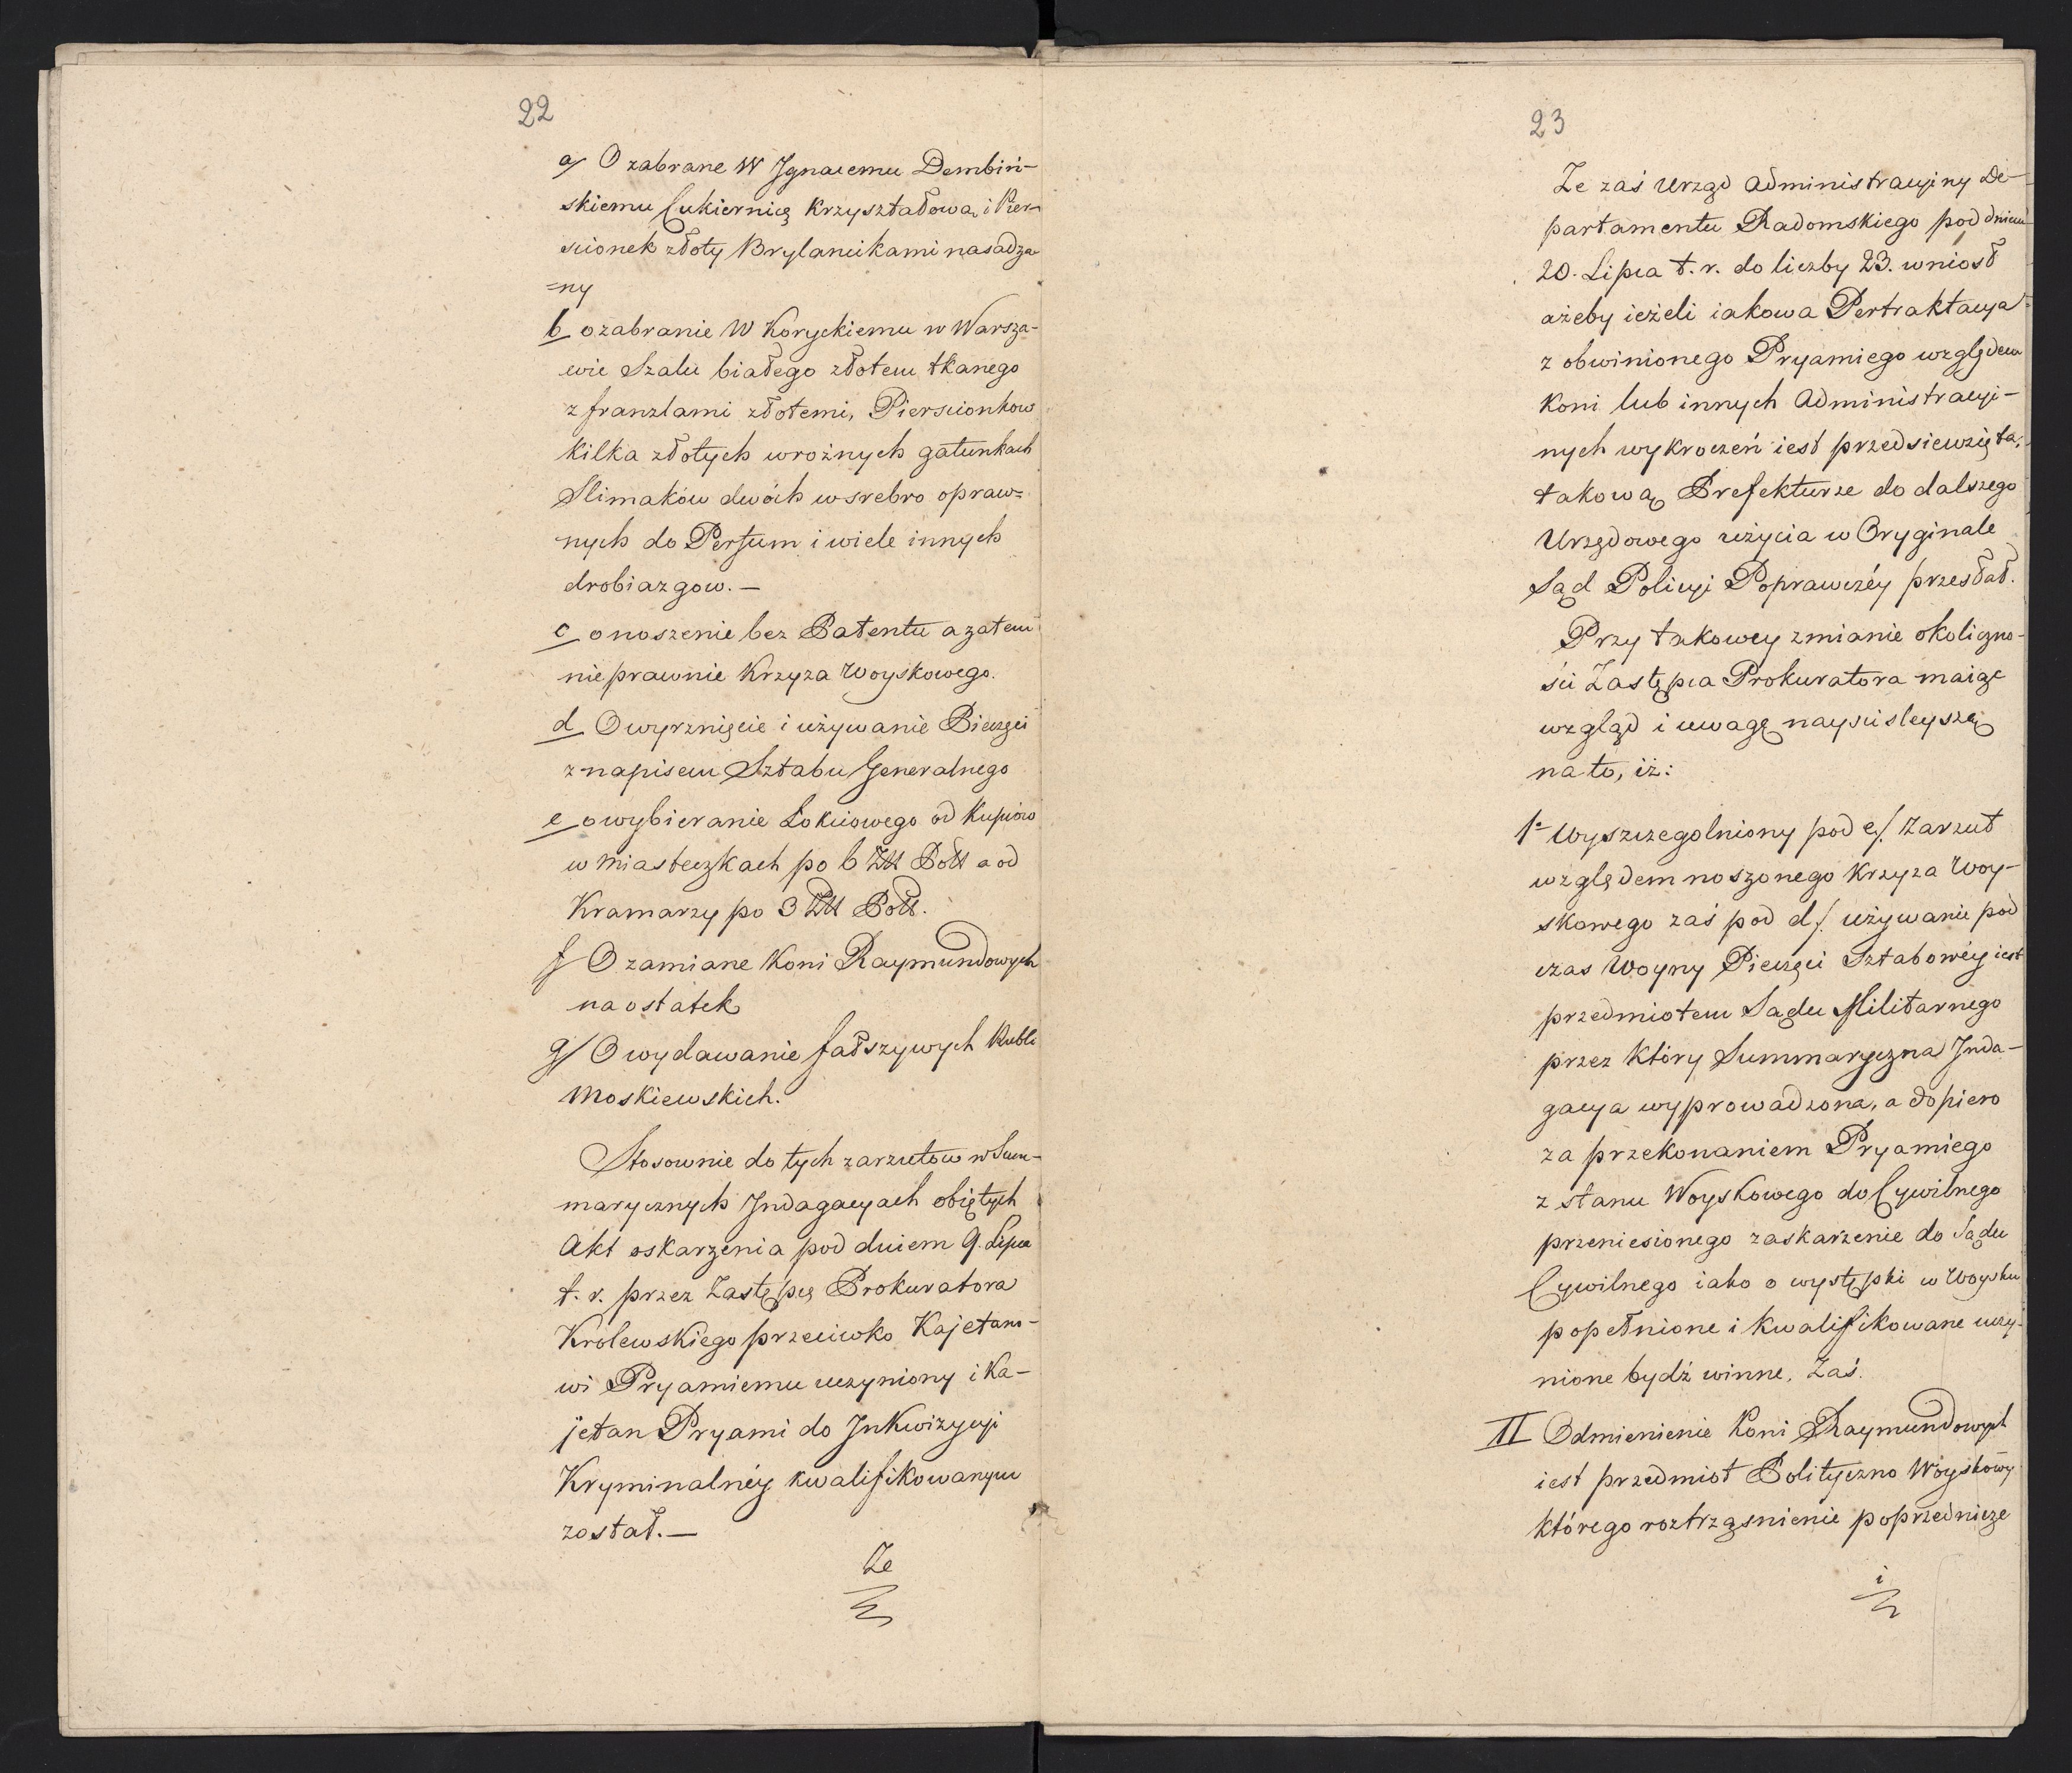 22
a/ O zabrane W Jgnacemu Dembiń-
skiemu Cukiernicę Krzyształową i Pier-
scionek złoty Brylancikami nasadza
=ny
b ozabranie W Koryckiemu w Warsza-
wie Szalu białego złotem tkanego
z franzlami złotemi, Pierscionkow
kilka złotych wrożnych gatunkach
Slimaków dwóch w srebro opraw=
nych do Perfum i wiele innych
drobiazgow. —
c onoszenie bez Patentu a zatem
nieprawnie Krzyza Woyskowego.
d O wyrznięcie i używanie Pieczęci
z napisem Sztabu Generalnego
e o wybieranie Łokciowego od Kupców
w Miasteczkach po 6 Ztt Polt a od
Kramarzy po 3 Ztt Polt.
f O zamiane Koni Raymundowych
na ostatek
g/ O wydawanie fałszywych Rubli
Moskiewskich.
Stosownie do tych zarzutow w Sum-
marycznych Jndagacyach obiętych
Akt oskarzenia pod dniem 9. Lipca
t. r. przez Zastępcę Prokuratora
Krolewskiego przeciwko Kajetano-
wi Pryamiemu uczyniony i Ka-
jetan Pryami do Jnkwizycyi
Kryminalnéy kwalifikowanym
został. —
Ze
23
Ze zaś Urząd Administracyiny De-
partamentu Radomskiego pod dniem
20. Lipca t. r. do liczby 23. wniosł
ażeby ieżeli iakowa Pertraktacya
z obwinionego Pryamiego względem
Koni lub innych Administracyi-
nych wykroczeń iest przedsiewzięta,
takową Prefekturze do dalszego
Urzędowego użycia w Oryginale
Sąd Policyi Poprawczéy przesłał.
Przy takowey zmianie okoliczno-
ści Zastępca Prokuratora maiąc
wzgląd i uwagę nayscisleyszą
na to, iż:
1º Wyszczegolniony pod c/. Zarzut
względem noszonego Krzyza Woy-
skowego zaś pod d/. używanie pod
czas Woyny Pieczęci Sztabowéy iest
przedmiotem Sądu Militarnego
przez Który Summaryczna Jnda-
gacya wyprowadzona, a dopiero
za przekonaniem Pryamiego
z stanu Woyskowego do Cywilnego
przeniesionego zaskarżenie do Sądu
Cywilnego iako o występki w Woysku
popełnione i kwalifikowane uczy-
nione bydź winne, Zaś.
II Odmienienie Koni Raymundowych
iest przedmiot Polityczno Woyskowy
którego roztrząsnienie poprzednicze
i